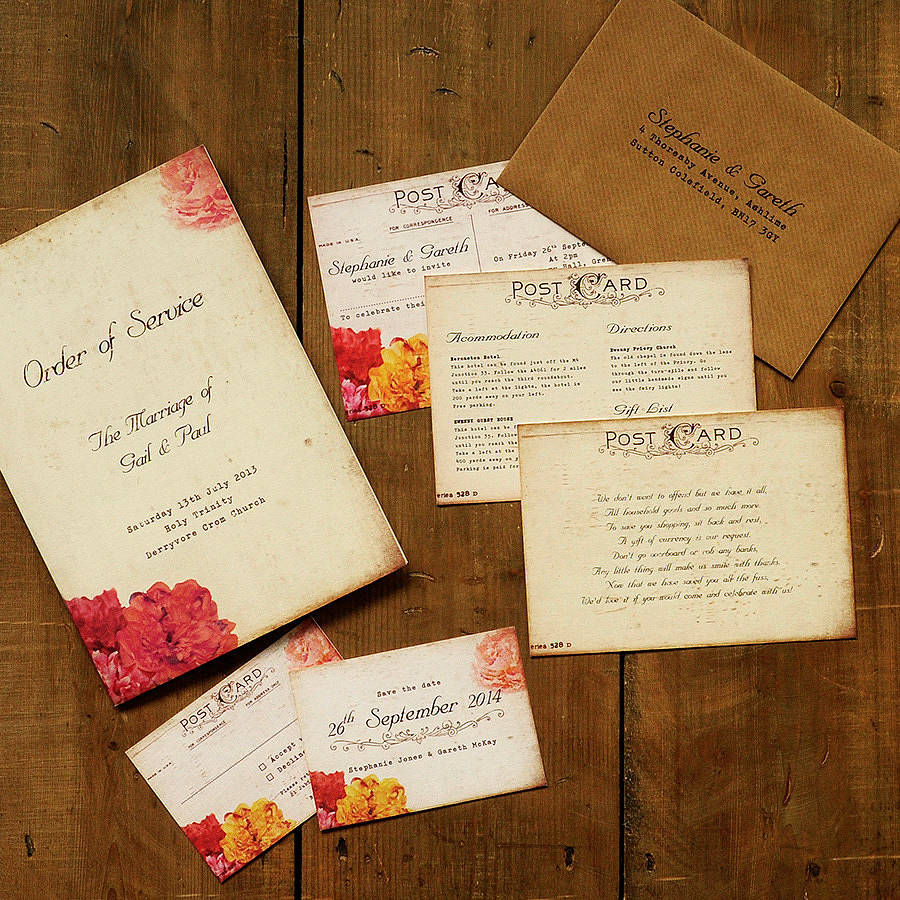 Order of Service
The Marriage of
Gail & Paul
Saturday 13th July 2013
Holy Trinity
Derryvore Crom Church
POST CA
FOR CORRESPONDENCE
FOR ADDRESS
MADE IN U.S.A.
Stephanie & Gareth
would like to invite
To celebrate their
On Friday 26th Septe
At 2pm
Hall, Gren
Stephanie & Gareth
4 Thoresby Avenue, Ashlime
Sutton Colefield, BN17 3GY
POST CARD
Acommodation
Heronston Hotel
This hotel can be found just off the M4
Junction 35. Follow the A4061 for 2 miles
until you reach the third roundabout.
Take a left at the lights, the hotel is
200 yards away on your left.
Free parking.
EWENNY GUEST HOUSE
This hotel can be
Junction 35. Follow
until you reach
Take a left at the
400 yards away on
Parking is paid for
Directions
Ewenny Priory Church
The old chapel is found down the lane
to the left
through the turn-stile and follow
our little handmade signs until you
the fairy light
Gift List
eries 528 D
POST CARD
We don't want to offend but we have it all,
All household goods and so much more.
To save you shopping, sit back and rest,
A gift of currency is our request.
Don't go overboard or rob any banks,
Any little thing will make us smile with thanks.
Now that we have saved you all the fuss,
We'd love it if you would come and celebrate with us!
eries 528 D
POST CARD
FOR CORRESPONDENCE
FOR ADDRESS ONLY
MADE IN U.S.A.
Accept
Decline
Please
Save the date
26th September 2014
Stephanie Jones & Gareth McKay